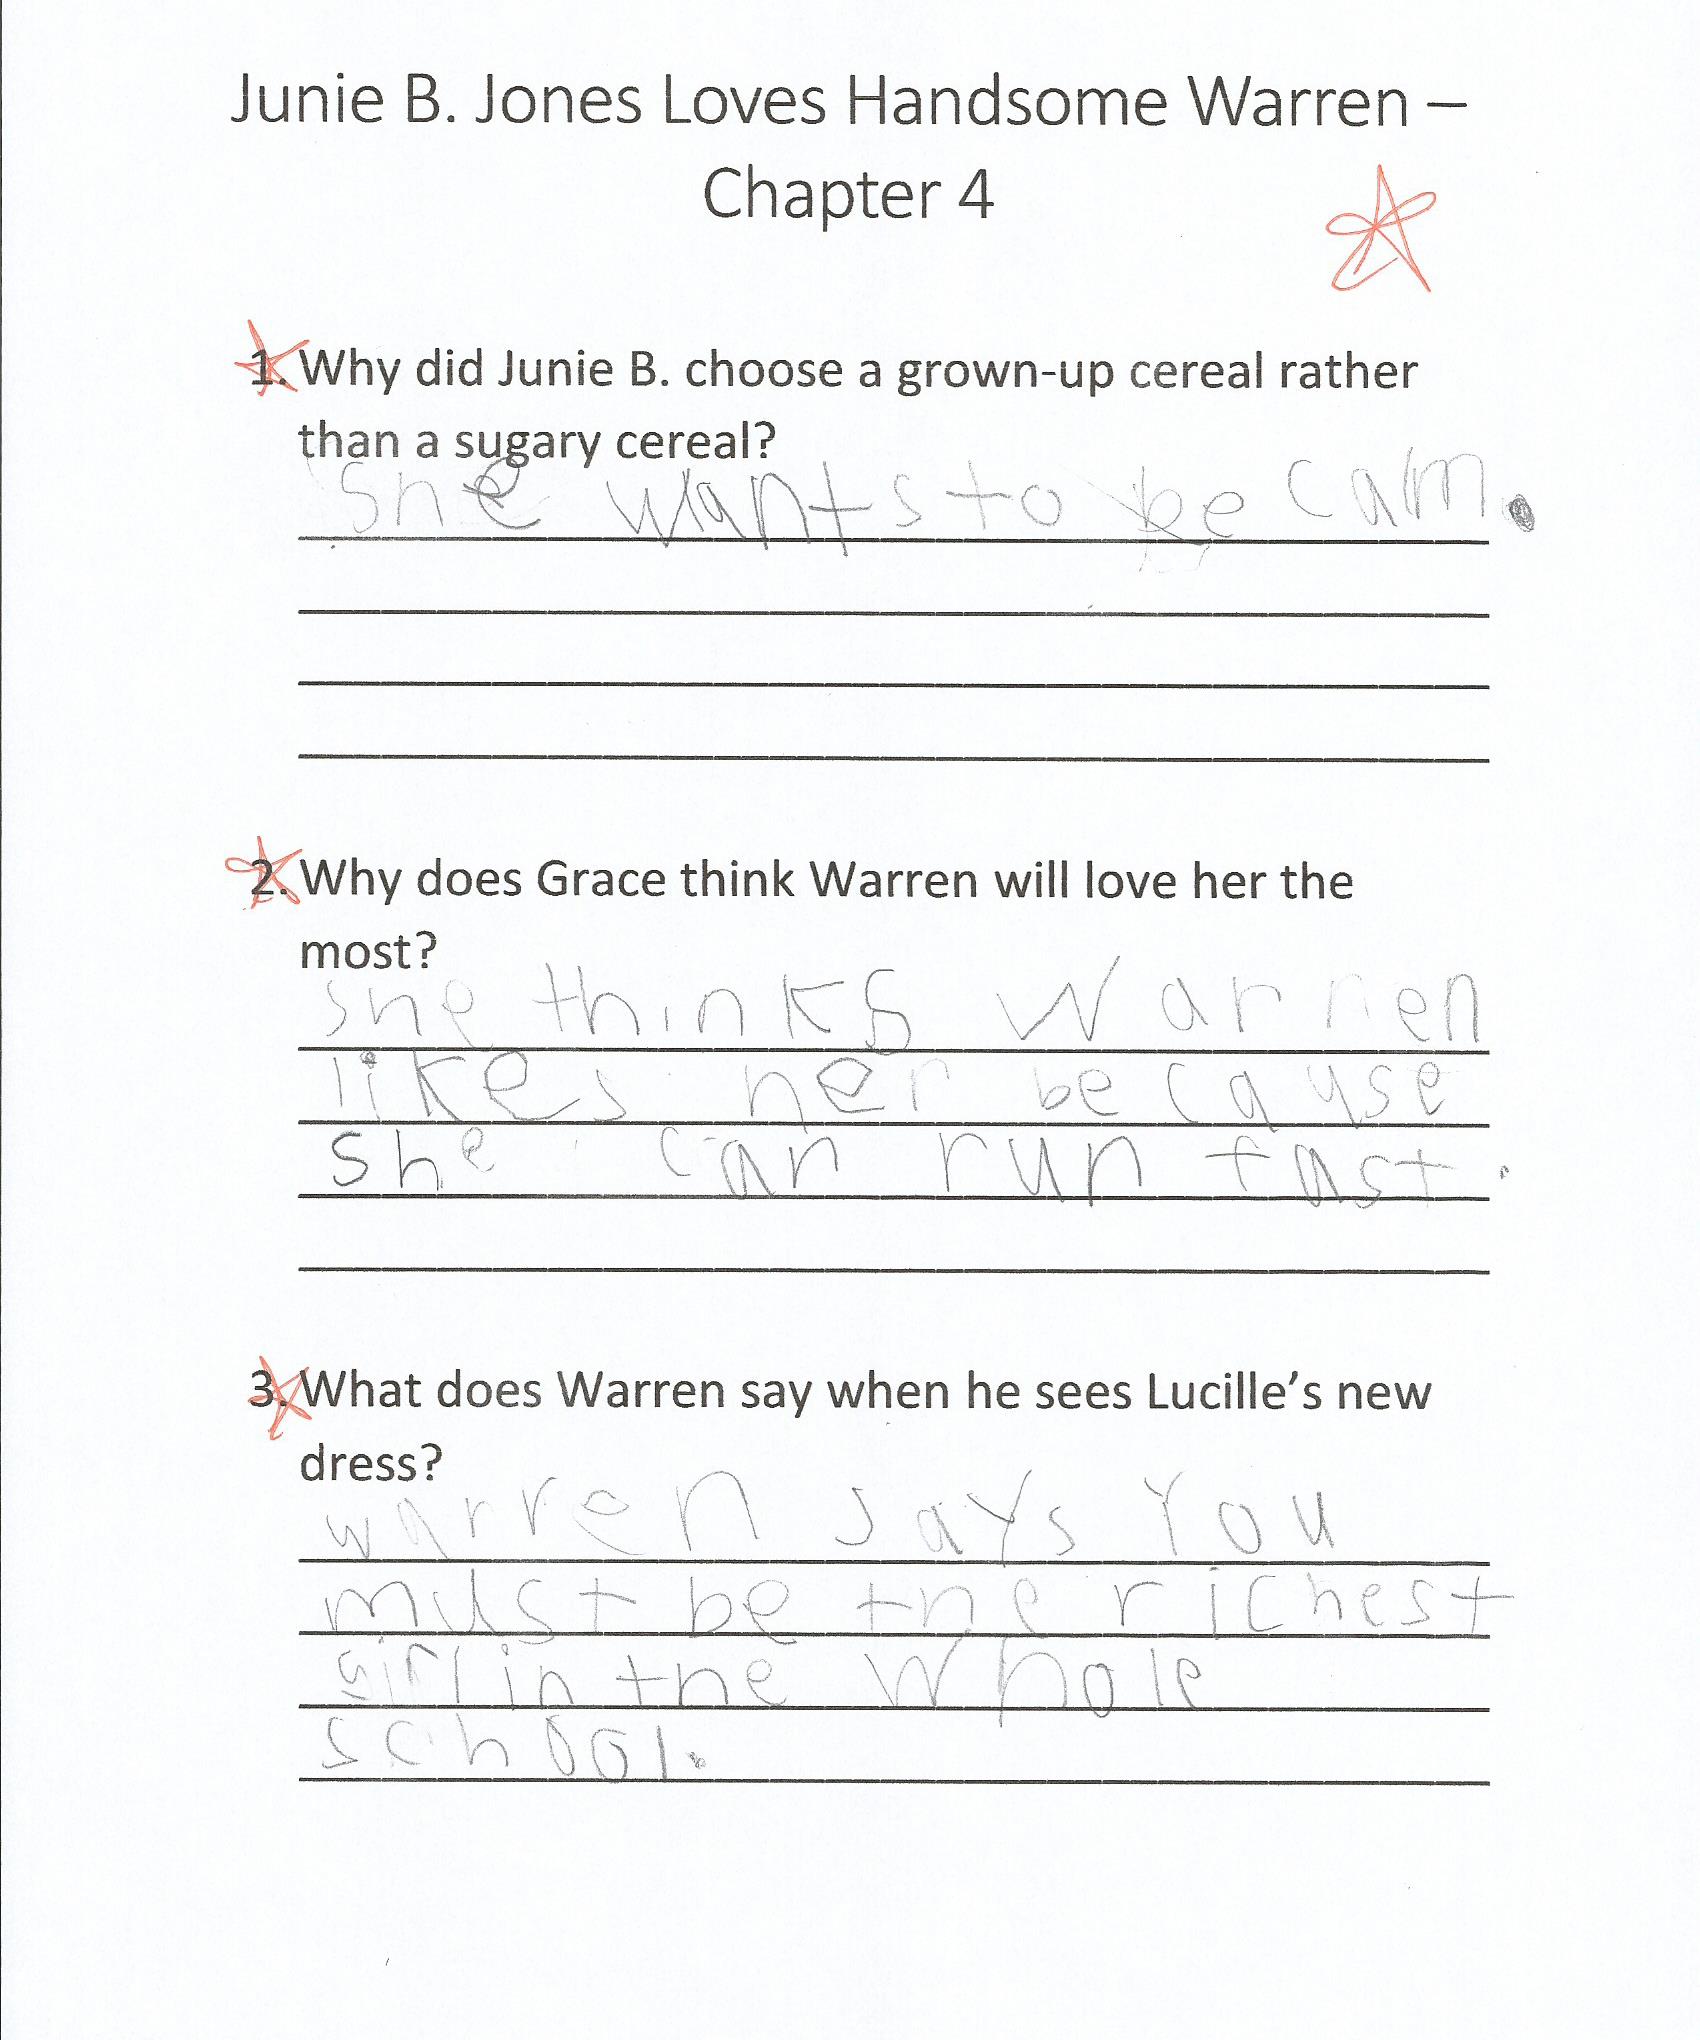 Junie B. Jones Loves Handsome Warren –
Chapter 4
1. Why did Junie B. choose a grown-up cereal rather
than a sugary cereal?
She wants to be calm.
2. Why does Grace think Warren will love her the
most?
she thinks Warren
likes her because
she can run fast.
3. What does Warren say when he sees Lucille's new
dress?
warren says You
must be the richest
girl in the whole
school.